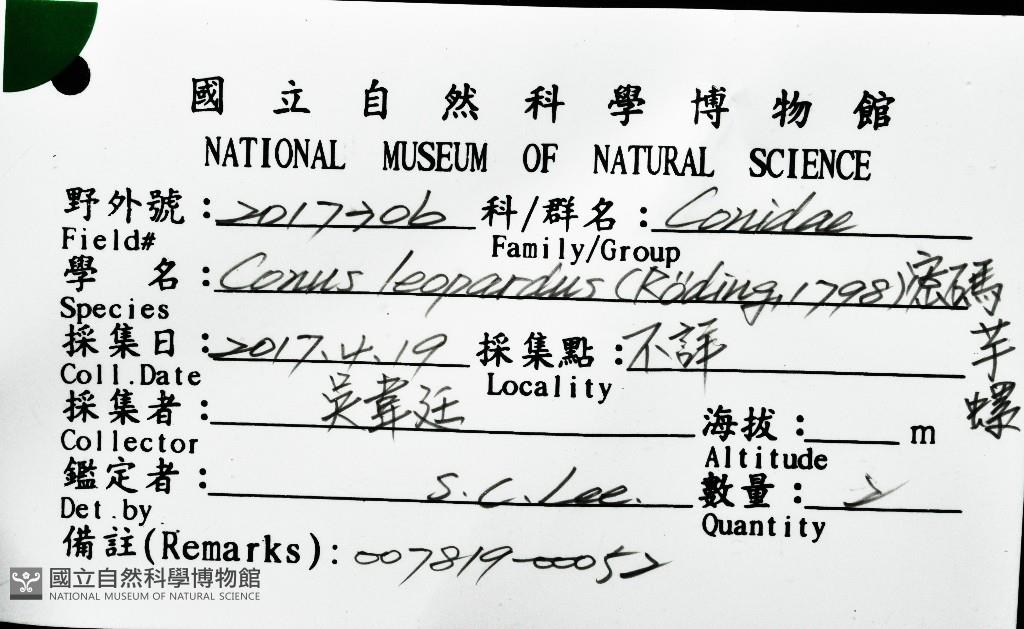 國立自然科學博物館
NATIONAL MUSEUM OF NATURAL SCIENCE
野外號：2017-06 科/群名：Conidae
Field# Family/Group
學 名：Conus leopardus (Röding, 1798) 密碼芋螺
Species
採集日：2017.4.19 採集點：不詳
Coll.Date Locality
採集者：吳韋廷 海拔： m
Collector Altitude
鑑定者：S.C.Lee. 數量：2
Det.by Quantity
備註(Remarks)：007819-00052
國立自然科學博物館
NATIONAL MUSEUM OF NATURAL SCIENCE